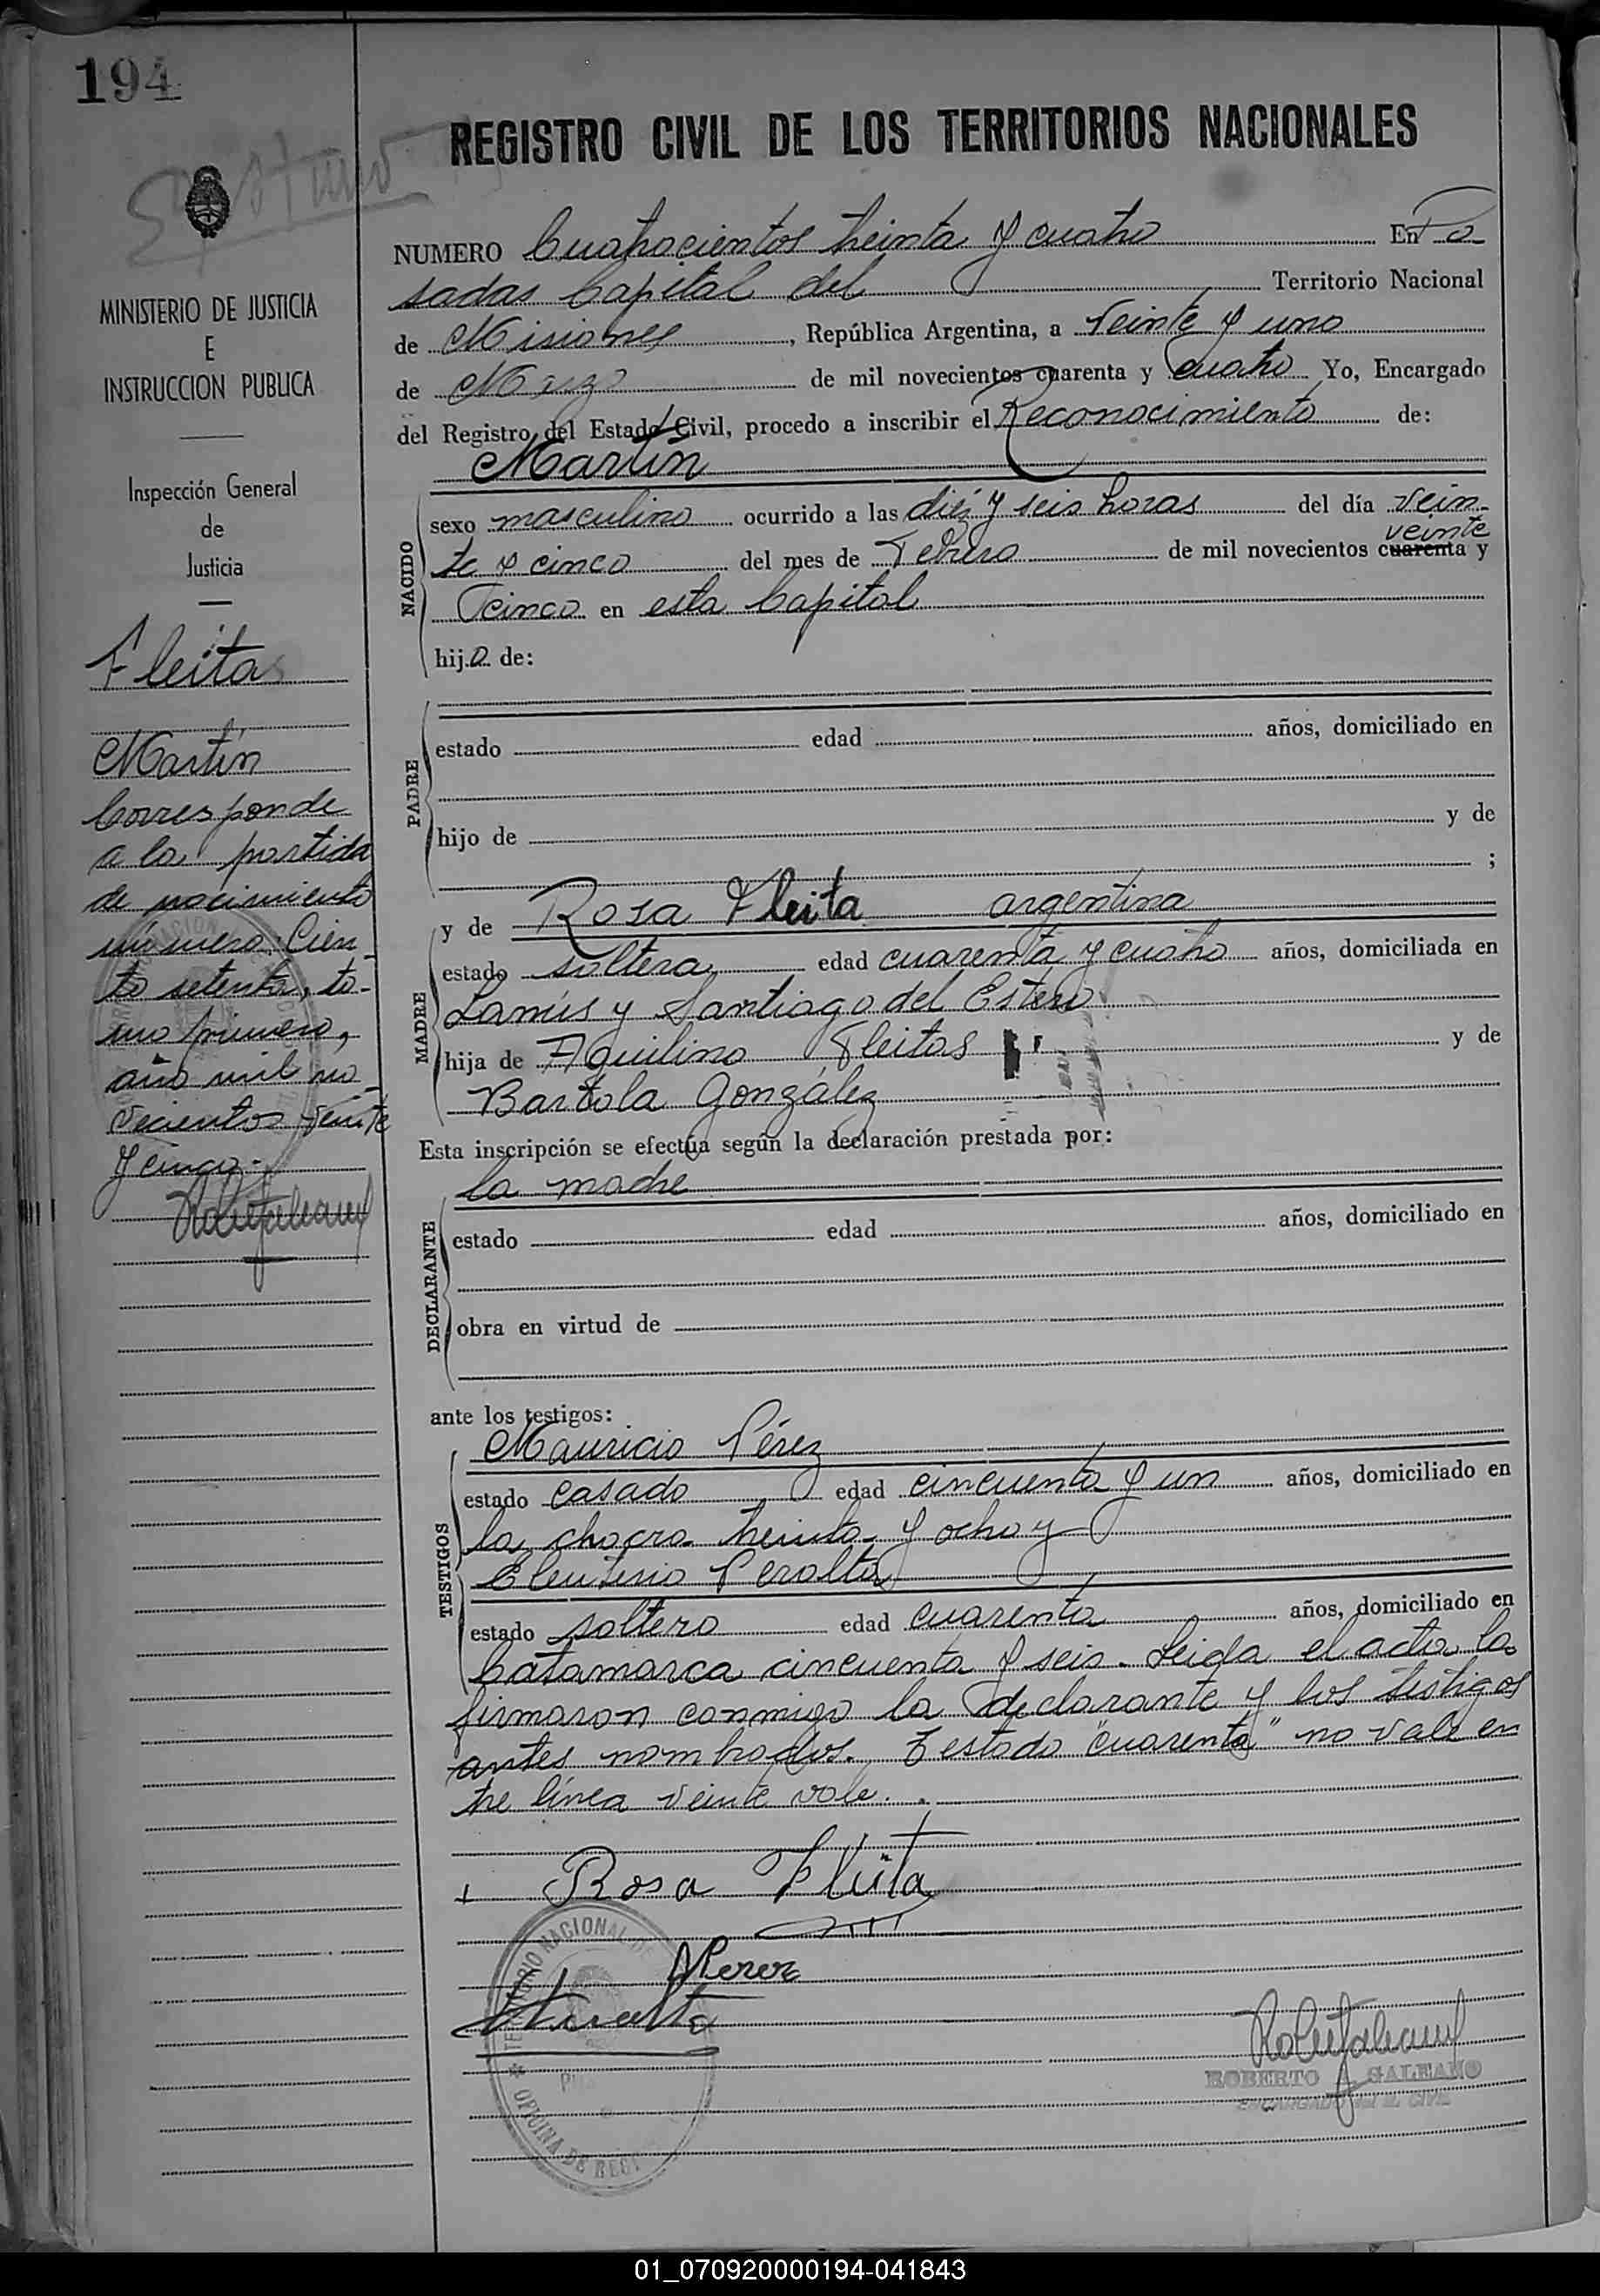 194
REGISTRO CIVIL DE LOS TERRITORIOS NACIONALES
MINISTERIO DE JUSTICIA
E
INSTRUCCION PUBLICA
Inspección General
de
Justicia
Fleitas
Martín
Corresponde
a la partida
de nacimiento
número Cien
to setenta, to-
mo primero,
año mil no-
vecientos veinte
y cinco.-
NUMERO Cuatrocientos treinta y cuatro En Po
sadas Capital del Territorio Nacional
de Misiones, República Argentina, a Veinte y uno
de Marzo de mil novecientos cuarenta y cuatro Yo, Encargado
del Registro del Estado Civil, procedo a inscribir el Reconocimiento de:
Martín
NACIDO
sexo masculino ocurrido a las diéz y seis horas del día vein-
veinte
te y cinco del mes de Febrero de mil novecientos cuarenta y
cinco en esta Capital
hijo de:
PADRE
estado edad años, domiciliado en
hijo de y de
;
MADRE
y de Rosa Fleita argentina
estado soltera edad cuarenta y cuatro años, domiciliada en
Lanús y Santiago del Estero
hija de Aquilino Fleitas y de
Bartola González
Esta inscripción se efectúa según la declaración prestada por:
la madre
DECLARANTE
estado edad años, domiciliado en
obra en virtud de
ante los testigos:
TESTIGOS
Mauricio Pérez
estado casado edad cincuenta y un años, domiciliado en
la chacra treinta y ocho y
Eleuterio Peralta
estado soltero edad cuarenta años, domiciliado en
Catamarca cincuenta y seis. Leida el acta la
firmaron conmigo la declarante y los testigos
antes nombrados. Testado "cuarenta" no vale en
tre línea veinte vale.
Rosa Fleita
MPerez
ROBERTO A. GALEANO
ENCARGADO del R. CIVIL
TERRITORIO NACIONAL DE
OFICINA DE REG
01_070920000194-041843